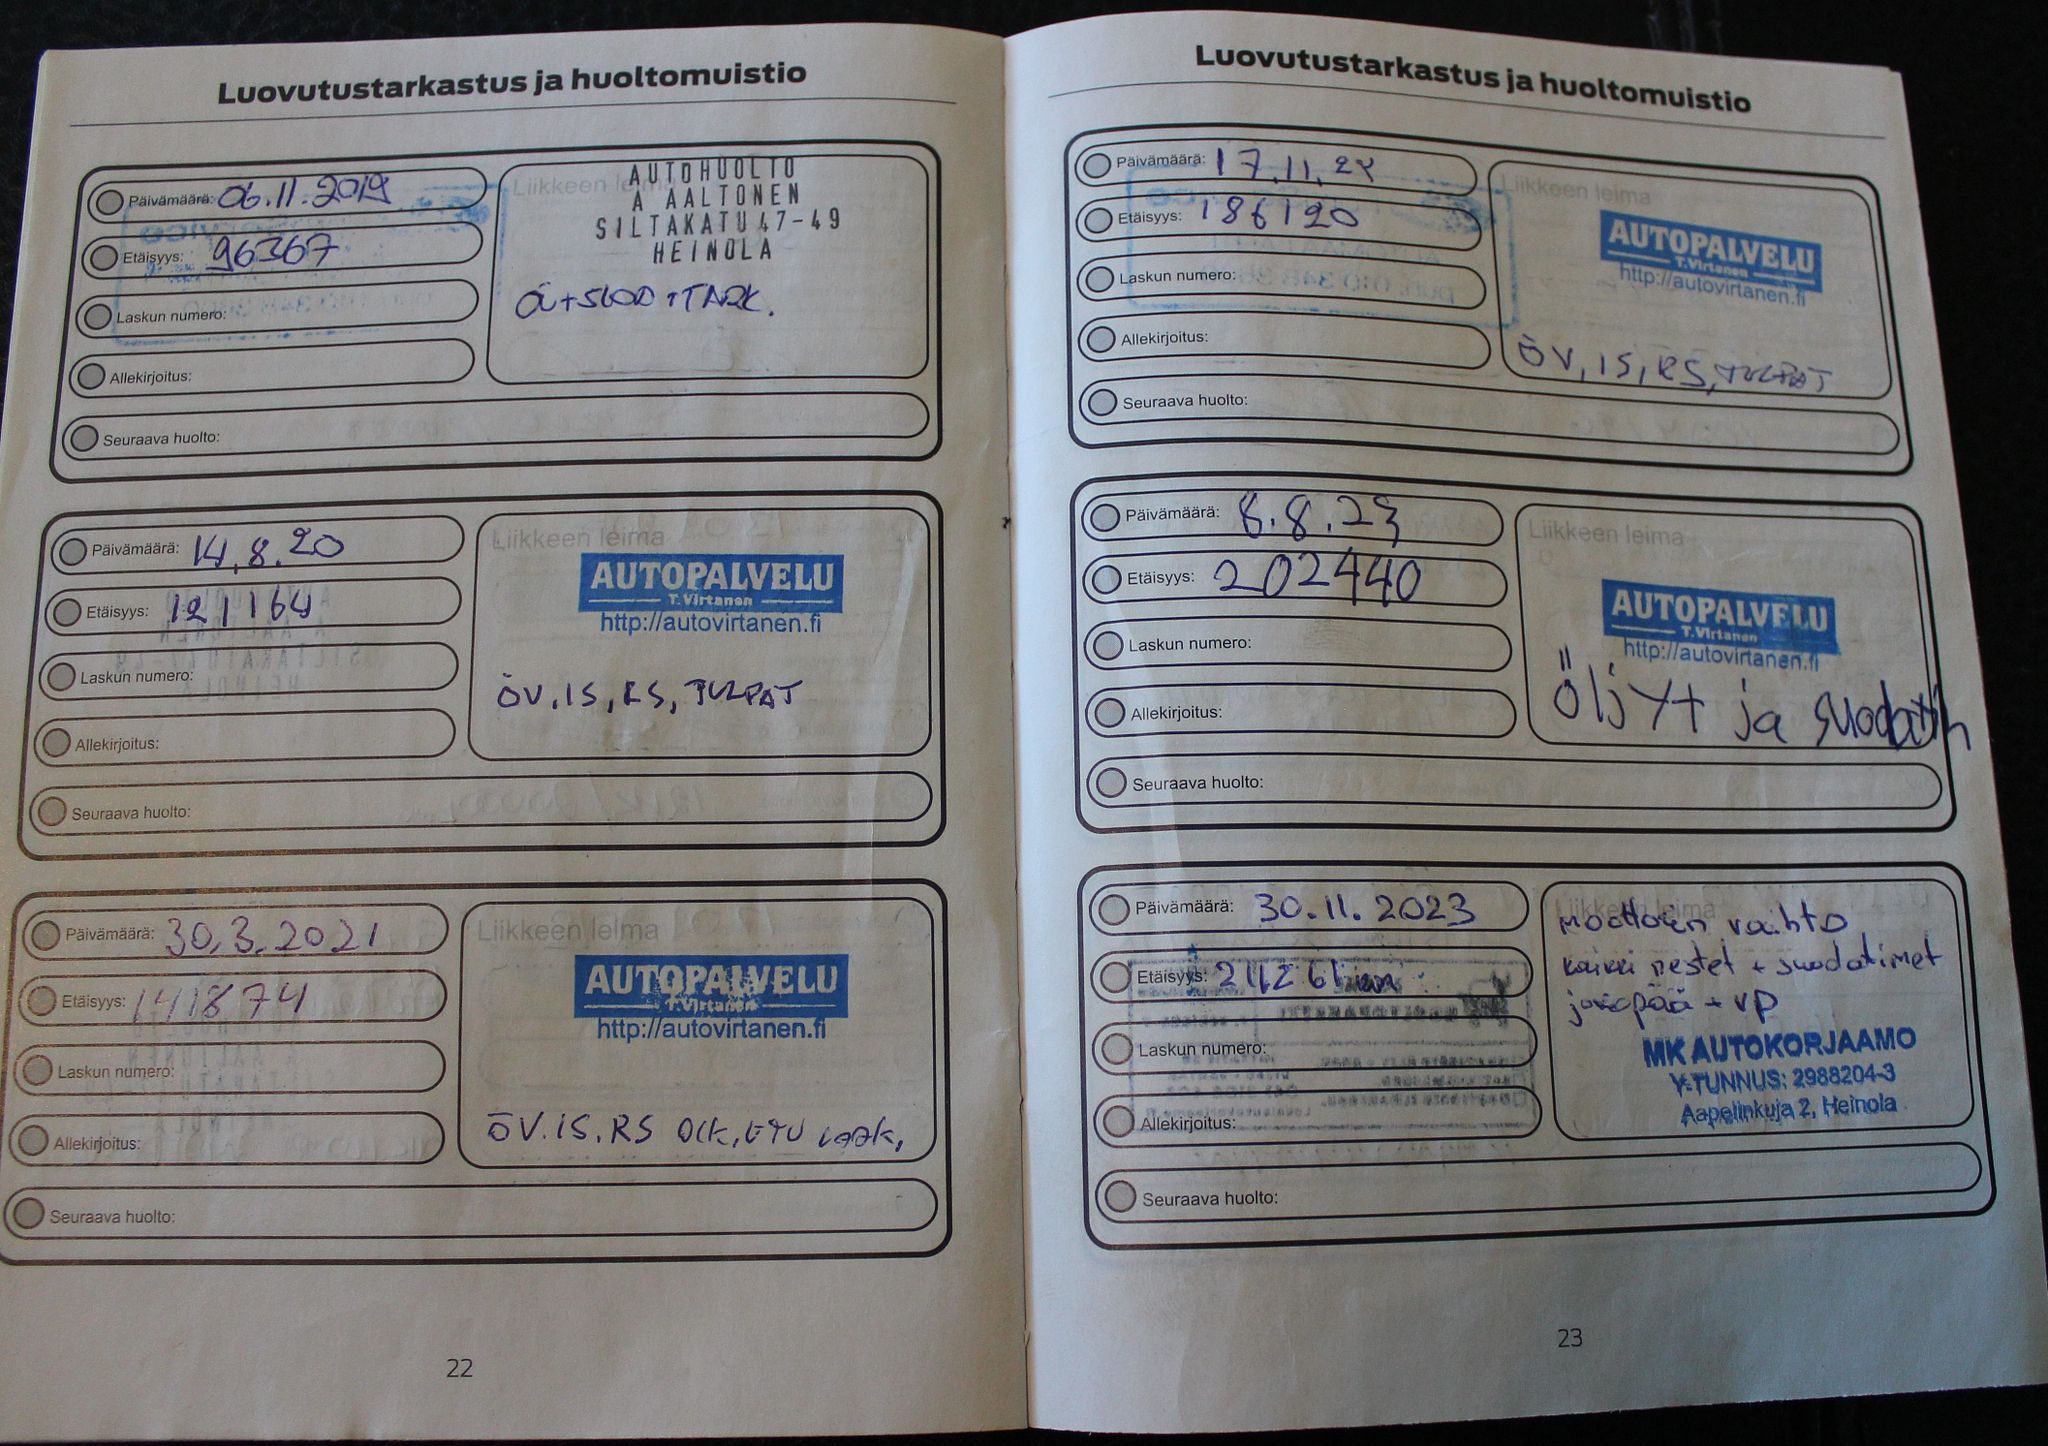 Luovutustarkastus ja huoltomuistio
Päivämäärä: 06.11.2019
Etäisyys: 96367
Laskun numero:
Allekirjoitus:
Seuraava huolto:
Liikkeen leima
AUTOHUOLTO
A AALTONEN
SILTAKATU 47-49
HEINOLA
ÖV+SUOD+TARK.
Päivämäärä: 14.8.20
Etäisyys: 121164
Laskun numero:
Allekirjoitus:
Seuraava huolto:
Liikkeen leima
AUTOPALVELU
T.Virtanen
http://autovirtanen.fi
ÖV, IS, RS, TULPAT
Päivämäärä: 30.3.2021
Etäisyys: 141874
Laskun numero:
Allekirjoitus:
Seuraava huolto:
Liikkeen leima
AUTOPALVELU
T.Virtanen
http://autovirtanen.fi
ÖV. IS, RS
22
Luovutustarkastus ja huoltomuistio
Päivämäärä: 17.11.22
Etäisyys: 186120
Laskun numero:
Allekirjoitus:
Seuraava huolto:
Liikkeen leima
AUTOPALVELU
T.Virtanen
http://autovirtanen.fi
ÖV, IS, RS, TULPAT
Päivämäärä: 8.8.23
Etäisyys: 202440
Laskun numero:
Allekirjoitus:
Seuraava huolto:
Liikkeen leima
AUTOPALVELU
T.Virtanen
http://autovirtanen.fi
Öljyt ja suodatin
Päivämäärä: 30.11.2023
Etäisyys:
Laskun numero:
Allekirjoitus:
Seuraava huolto:
Liikkeen leima
moottorin vaihto
kaikki nestet + suodatimet
jakopää + vp
MK AUTOKORJAAMO
Y-TUNNUS: 2988204-3
Aapelinkuja 2, Heinola
23